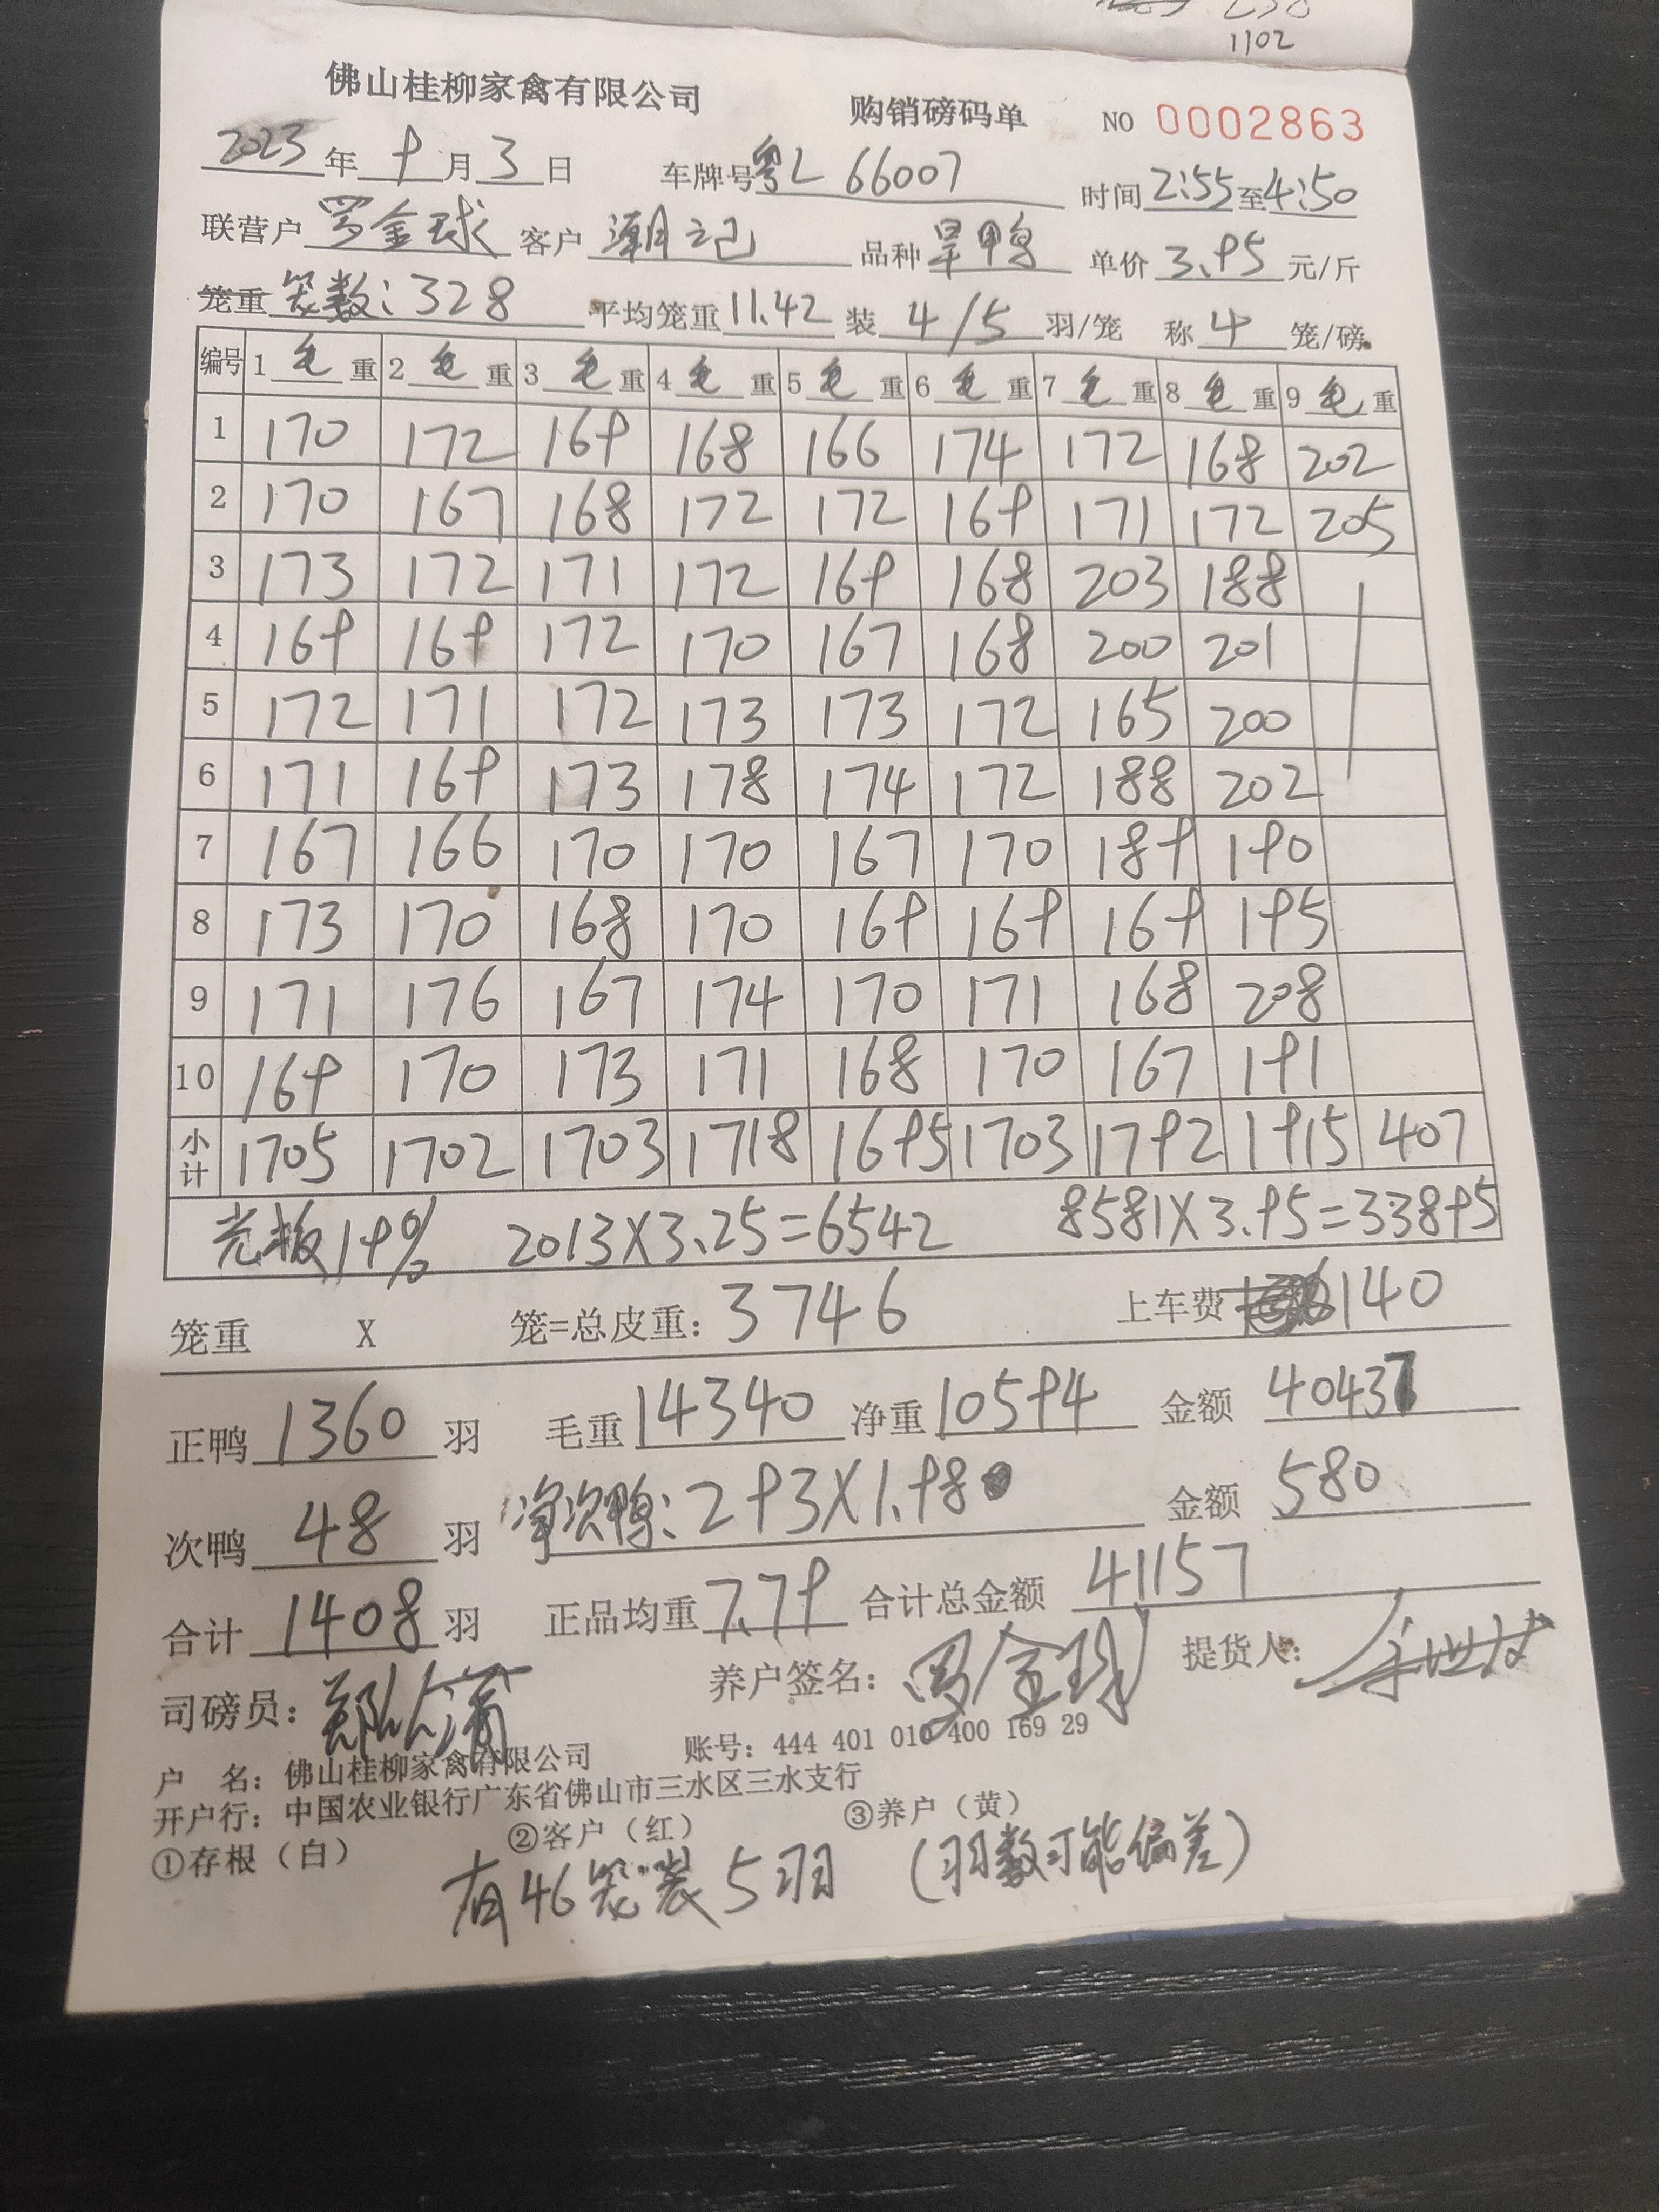 1102
佛山桂柳家禽有限公司 购销磅码单 NO 0002863
2023年9月3日 车牌号粤L 66007 时间2:55至4:50
联营户罗金球 客户潮记 品种旱鸭 单价3.95元/斤
笼重 笼数:328 平均笼重11.42 装4/5羽/笼 称4笼/磅
编号 1毛重 2毛重 3毛重 4毛重 5毛重 6毛重 7毛重 8毛重 9毛重
1 170 172 169 168 166 174 172 168 202
2 170 167 168 172 172 169 171 172 205
3 173 172 171 172 169 168 203 188
4 169 169 172 170 167 168 200 201
5 172 171 172 173 173 172 165 200
6 171 169 173 178 174 172 188 202
7 167 166 170 170 167 170 189 190
8 173 170 168 170 169 169 169 195
9 171 176 167 174 170 171 168 208
10 169 170 173 171 168 170 167 191
小计 1705 1702 1703 1718 1695 1703 1792 1915 407
光板19% 2013X3.25=6542 8581X3.95=33895
笼重 X 笼=总皮重:3746 上车费140
正鸭1360羽 毛重14340 净重10594 金额40437
次鸭48羽 净次鸭:293X1.98 金额580
合计1408羽 正品均重7.79 合计总金额41157
司磅员: 养户签名:罗金球 提货人:
户 名:佛山桂柳家禽有限公司 账号:444 401 010 400 169 29
开户行:中国农业银行广东省佛山市三水区三水支行
①存根(白) ②客户(红) ③养户(黄)
有46笼装5羽 (羽数可能偏差)